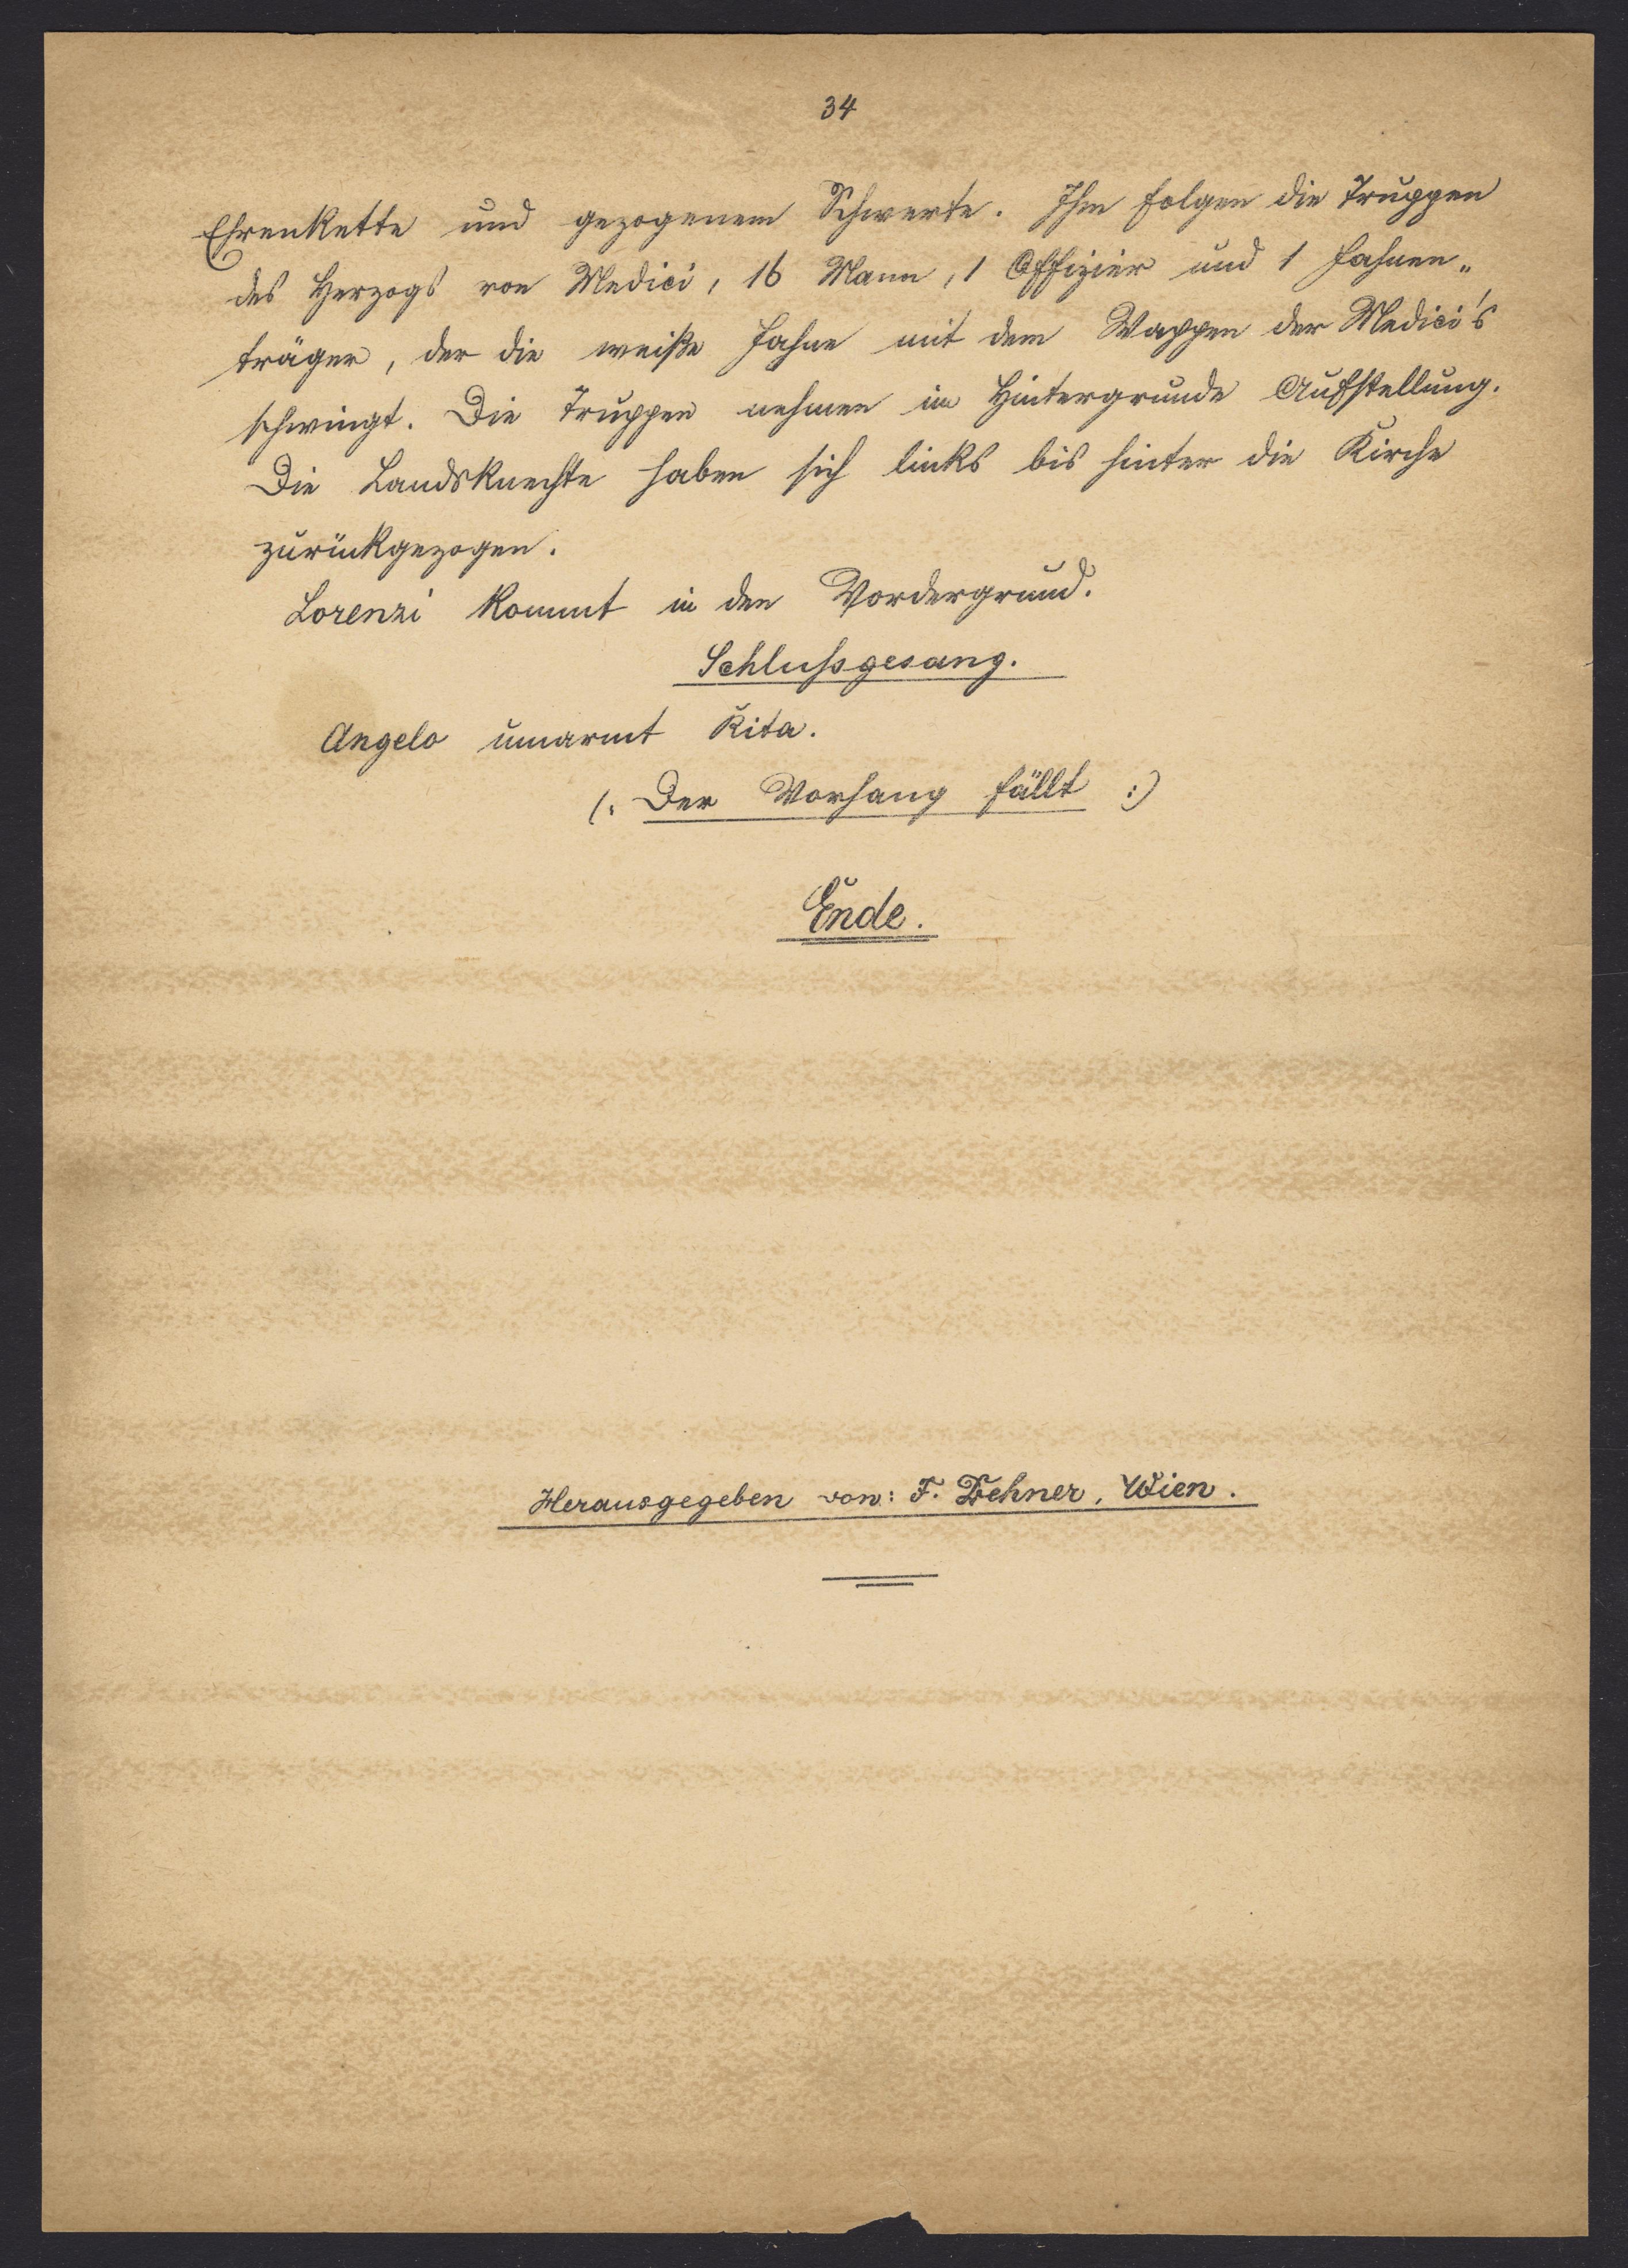 34
Ehrenkette und gezogenem Schwerte. Ihm folgen die Truppen
des Herzogs von Medici, 16 Mann, 1 Offizier und 1 Fahnen„
träger, der die weiße Fahne mit dem Wappen der Medici's
schwingt. Die Truppen nehmen im Hintergrunde Aufstellung.
Die Landsknechte haben sich links bis hinter die Kirche
zurückgezogen.
Lorenzi kommt in den Vordergrund.
Schlußgesang.
Angelo umarmt Rita.
(: Der Vorhang fällt :)
Ende.
Herausgegeben von: F. Dehner, Wien.